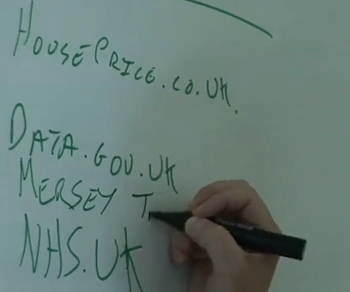 HOUSEPRICE.CO.UK.
DATA.GOV.UK
MERSEY T
NHS.UK